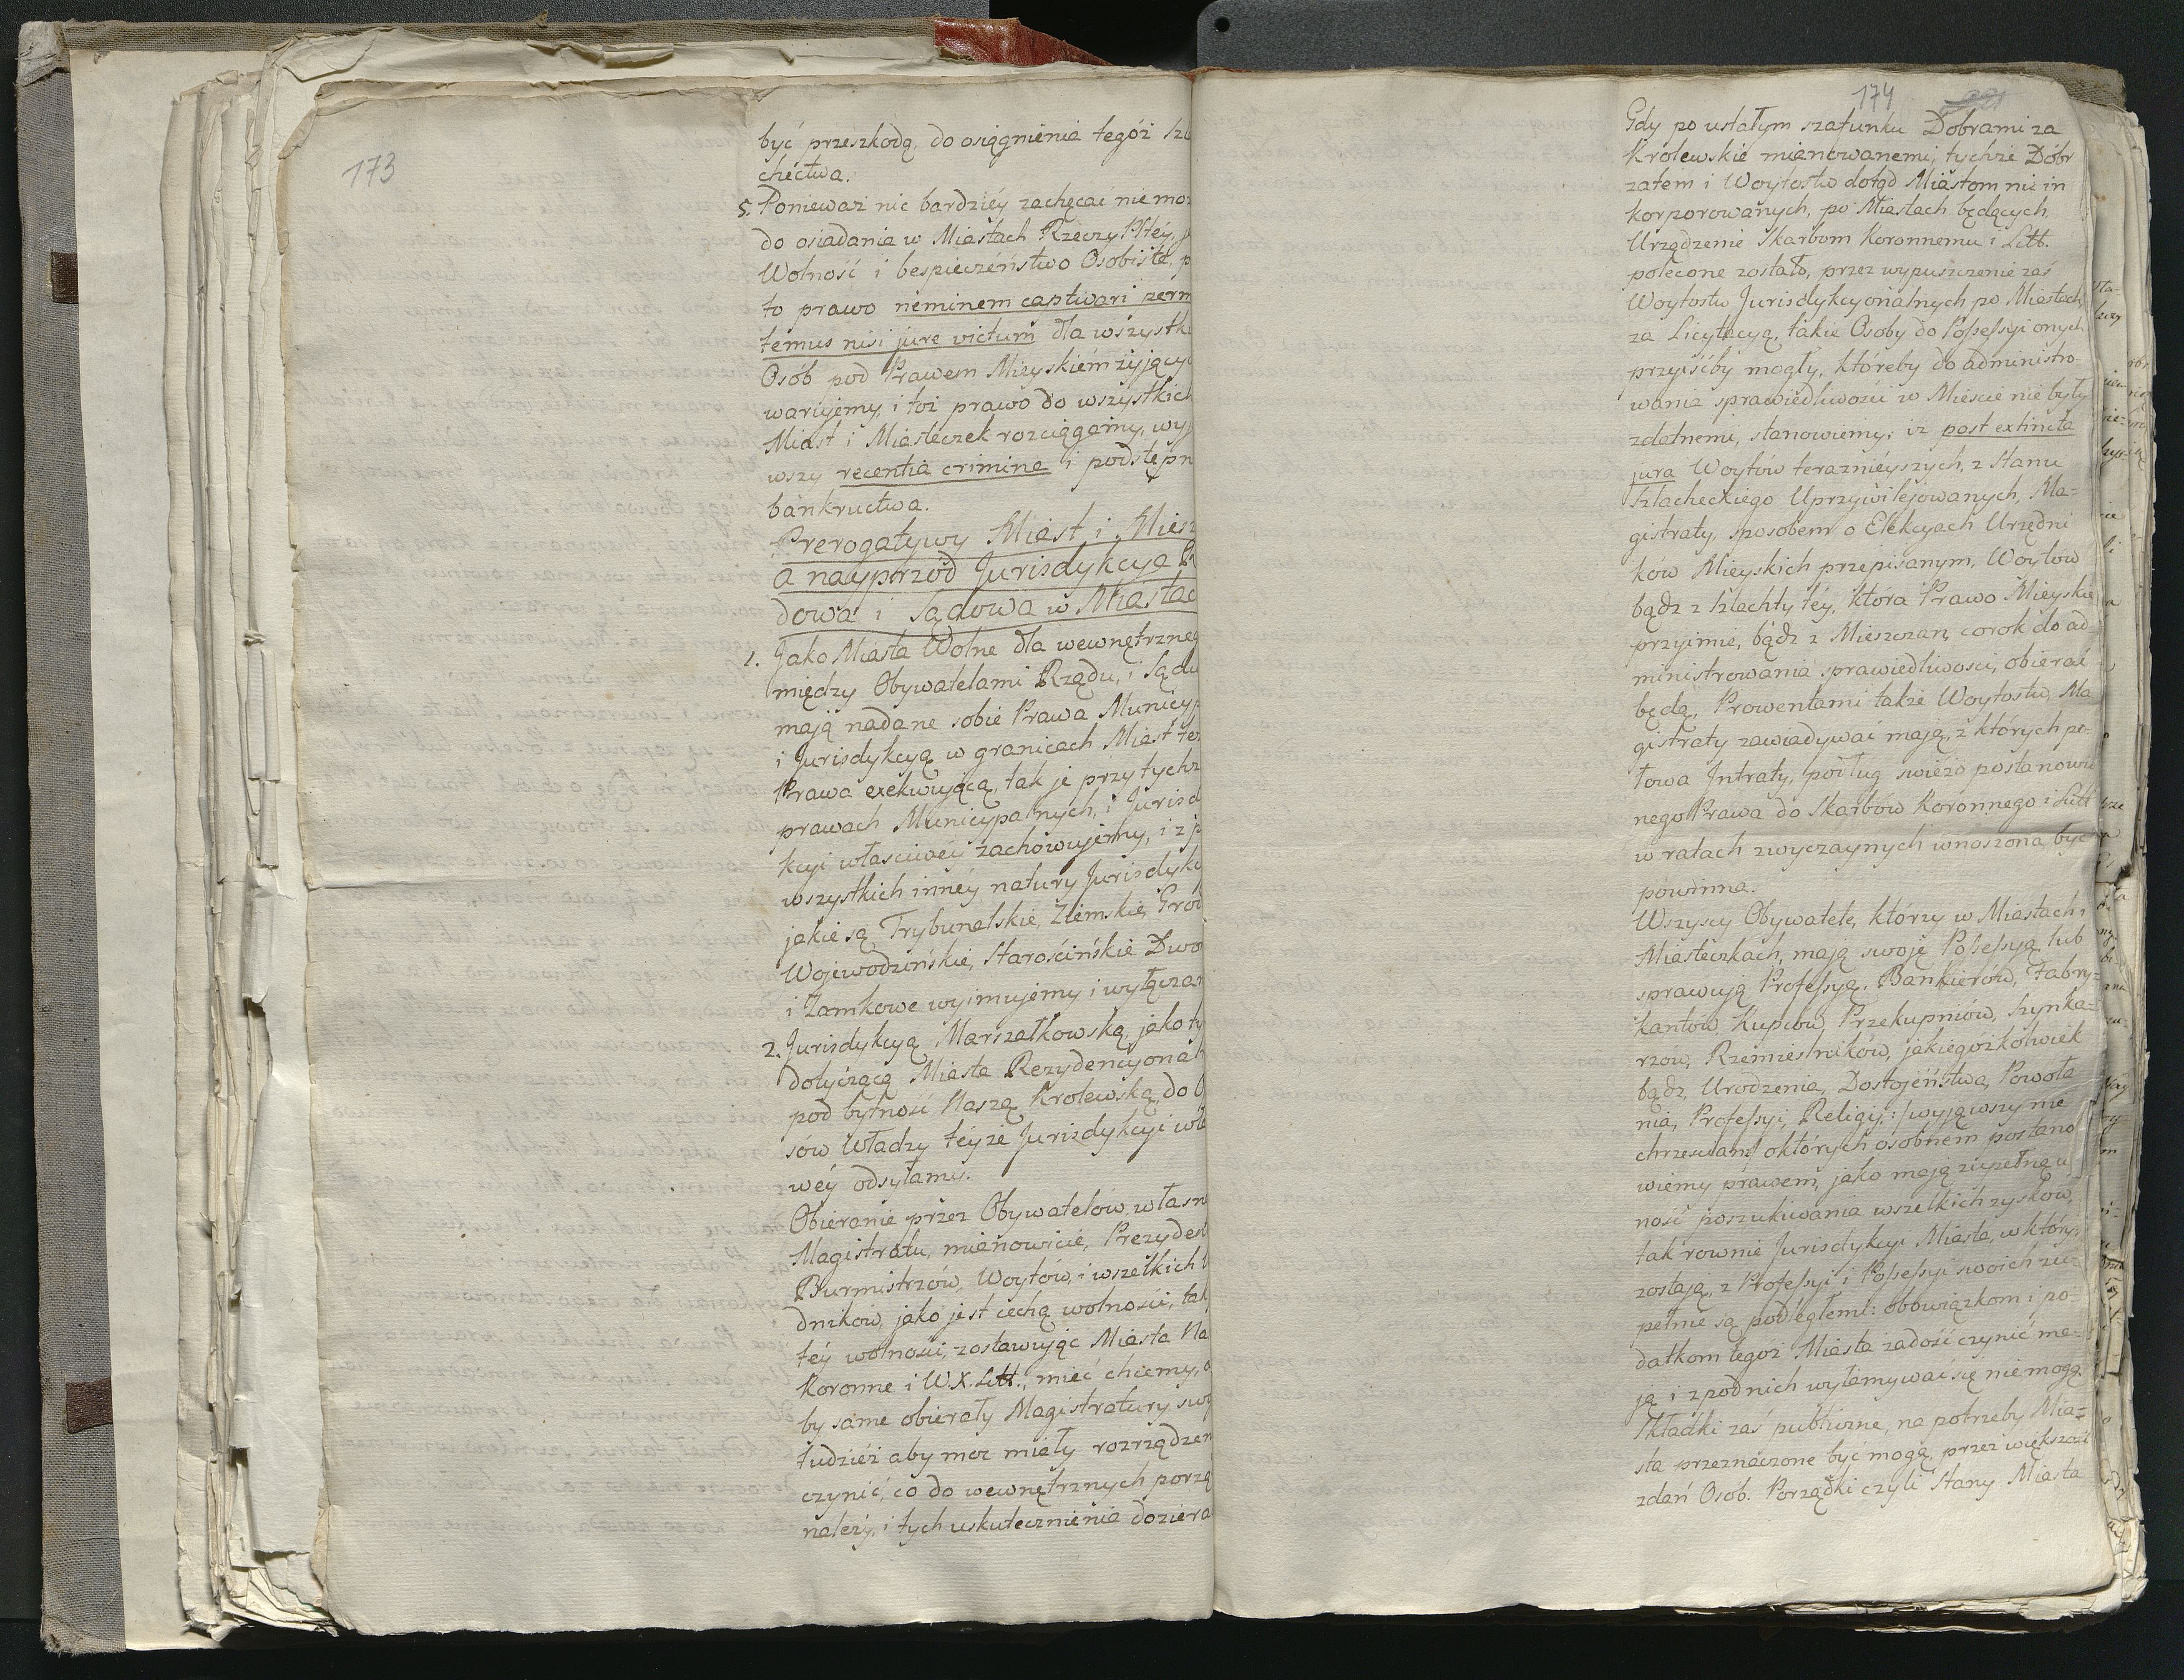 173
być przeszkodą, do osiągnienia tegóż szl
chéctwa.
5. Ponieważ nic bardziéy zachęcać nie mo
do osiadania w Miastach Rzeczy Pltéy, j
Wolność i bespieczéństwo Osobiste, p
to prawo neminem captivari perm
temus nisi jure victum dla wszystk
Osób pod Prawem Mieyskiém żyjącyc
warujemy, i toż prawo do wszystkich
Miast i Miasteczek rozciągamy, wyj
wszy recentia crimina i podstępn
bankructwa.
Prerogatywy Miast i Miesz
a nayprzód Jurisdykcya R
dowa i Sądowa w Miastac
1. Jako Miasta Wolne dla wewnętrzneg
między Obywatelami Rządu, i Sądu
mają nadane sobie Prawa Municyp
i Jurisdykcyą w granicach Miast te
Prawa exekwującą, tak je przy tychż
prawach Municypalnych, i Jurisd
kcyi własciwéy zachowujemy, i z p
wszystkich innéy natury Jurisdykc
jakie są Trybunalskie, Ziemskie, Grod
Wojewodzińskie, Starościńskie Dwor
i Zamkowe wyimujemy i wyłączam
2. Jurisdykcyą Marszałkowską, jako ty
dotyczącą Miasta Rezydencyonaln
pod bytność Naszą Krolewską, do O
sów Władzy téyże Jurisdykcyi wła
wéy odsyłamy.
Obieranie przez Obywatelów, własn
Magistratu, mianowicie, Prezyden
Burmistrzów, Woytów, i wszelkich U
dników, jako jest cechą wolności, tak
téy wolności, zostawując Miasta Na
Koronne i W.X. Litt., mieć chcemy, a
by same obierały Magistratury swo
tudzież aby moc miały rozrządzen
czynić, co do wewnętrznych porzą
należy, i tych uskutecznienia doziera
174
Gdy po ustałym szafunku Dobrami za
Królewskie mianowanemi, tychże Dóbr
zatem i Woytostw dotąd Miastom nie in
korporowanych, po Miastach będących,
Urządzenie Skarbom Koronnemu i Litt.
polecone zostało, przez wypuszczenie zaś
Woytostw Jurisdykcyonalnych po Miastach,
za Licytacyą, takie Osoby do Possessyi onych
przyiśćby mogły, któreby do administro-
wania sprawiedliwości w Mieście nie były
zdatnemi, stanowiemy; iż post extincta
jura Woytów teraznieyszych, z Stanu
Szlacheckiego Uprzywilejowanych, Ma=
gistraty, sposobem o Elekcyach Urzędni
ków Mieyskich przepisanym, Woytow
bądz z Szlachty téy, ktora Prawo Mieyskie
przyimie, bądz z Mieszczan, corok do ad
ministrowania sprawiedliwosci, obierać
będą, Prowentami także Woytostw, Ma
gistraty zawiadywać mają, z których po-
łowa Intraty, podług swieżo postanowio
nego Prawa do Skarbów Koronnego i Litt
w ratach zwyczaynych wnoszona być
powinna.
Wszyscy Obywatele, którzy w Miastach i
Miasteczkach, mają swoje Possessyą lub
sprawują Professyą. Bankierów, Fabry=
kantów, Kupców, Przekupniów, Szynka=
rzów, Rzemieslników, jakiegożkolwiek
bądz, Urodzenia, Dostojéństwa, Powoła
nia, Professyi, Religij: /wyjąwszy nie
chrzescian/ o których osobném postano
wiemy prawem, jako mają zupełną w
ność poszukiwania wszelkich zysków,
tak rownie Jurisdykcyi Miasta, w który
zostają, z Professyi i Possessyi swoich zu=
pełnie są podległemi: obowiązkom i po-
datkom tegoż Miasta zadość czynić ma=
ją i zpod nich wyłamywać się nie mogą.
Składki zaś publiczne, na potrzeby Mia=
sta przeznaczone być mogą, przez większość
zdań Osób. Porządki czyli Stany Miasta